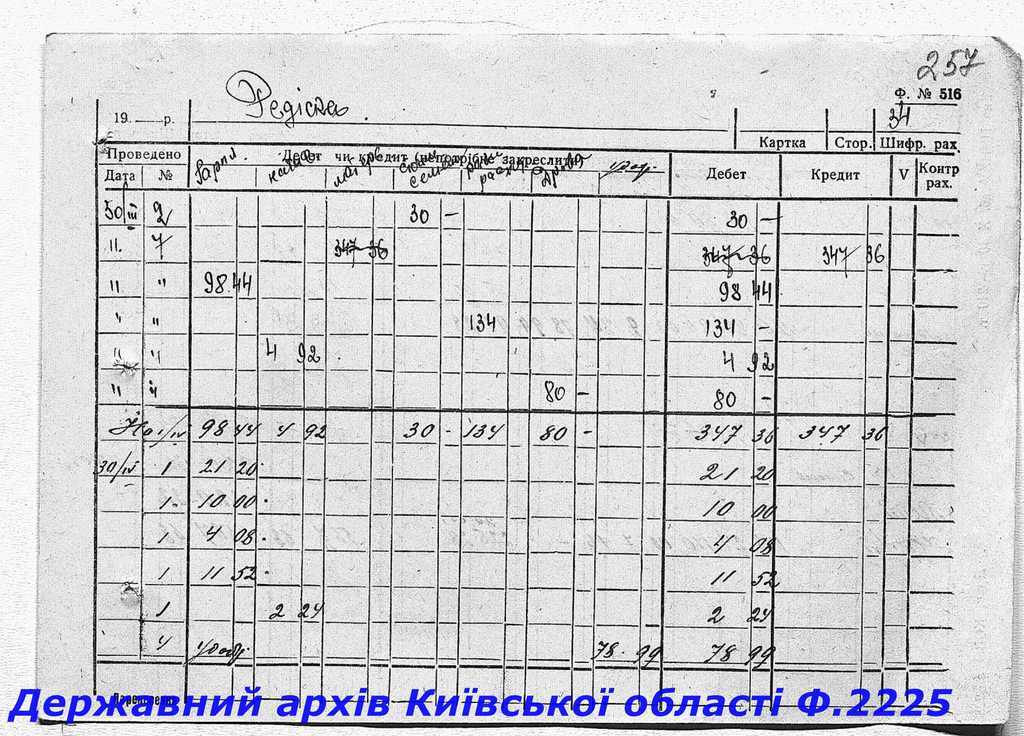 257
Ф. № 516
Редіска
19 р.
34
Картка Стор. Шифр. рах.
Проведено Дебет чи кредит (непотрібне закреслити)
Дата № Дебет Кредит V Контр рах.
50/III 2 30 – 30 –
11. 7 347 36 347 36 347 36
11 " 98 44 98 44
" " 134 134 –
" " 4 92 4 92
" " 80 – 80 –
На 1/IV 98 44 4 92 30 – 134 80 – 347 36 347 36
30/IV 1 21 20 21 20
1 10 00 10 00
1 4 08 4 08
1 11 52 11 52
1 2 24 2 24
4 78 99 78 99
Державний архів Київської області Ф.2225